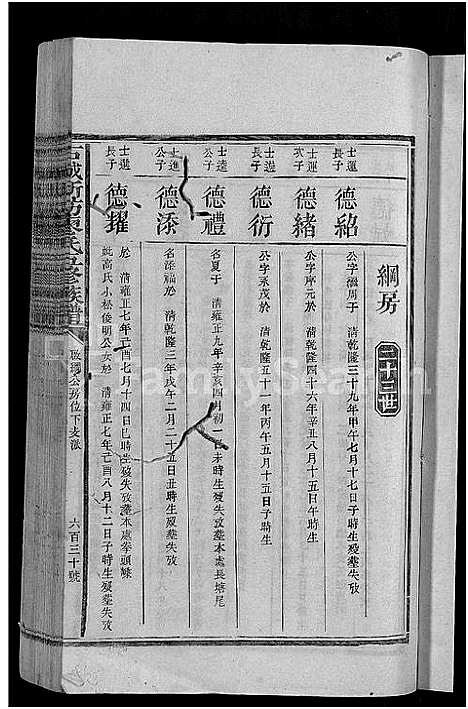 綱房 二十三世
士運長子 德紹 公字溫周于 清乾隆三十九年甲午七月十七日子時生歿塟失攷
士運次子 德緒 公字摩元於 清乾隆四十六年辛丑八月十五日午時生
士運長子 德衍 公字永茂於 清乾隆五十一年丙午五月十五日子時生
士遠公子 德禮 名夏于 清雍正九年辛亥四月初一日未時生歿塟本處長塘尾
士進公子 德添 名添福於 清乾隆三年戊午二月二十五日丑時生歿塟失攷
士進長子 德擢 於 清雍正七年己酉七月十四日巳時生歿失攷塟本處拳頭嵊
娶高氏小松俊明公女於 清雍正七年己酉八月十二日子時生歿塟失攷
石城 陳氏五修族譜
公房位下支派
六百三十號